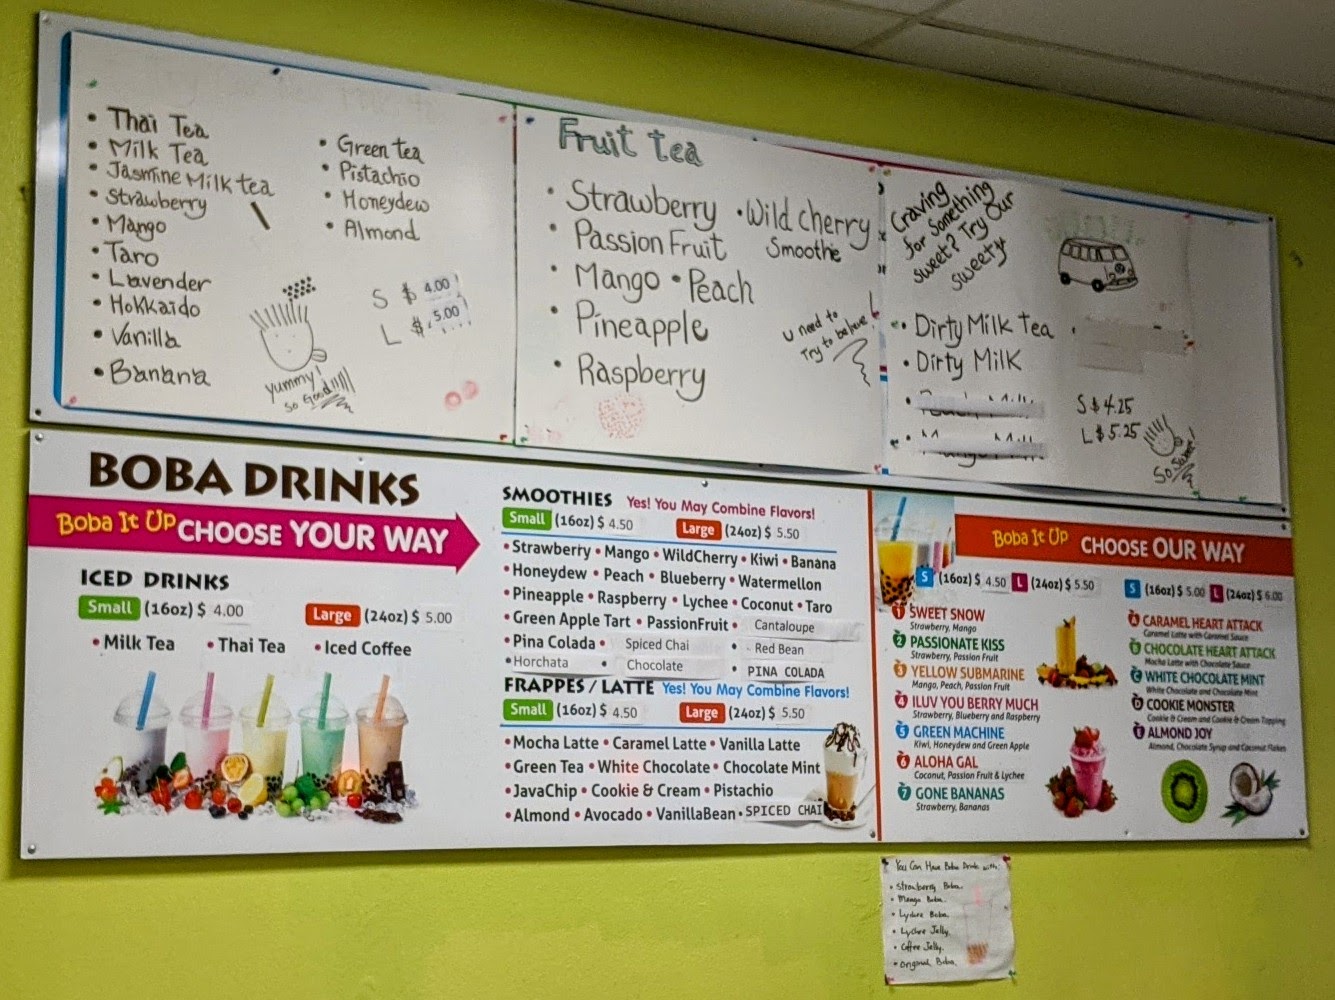 • Thai Tea
• Milk Tea
• Jasmine Milk tea
• Strawberry
• Mango
• Taro
• Lavender
• Hokkaido
• Vanilla
• Banana
• Green tea
• Pistachio
• Honeydew
• Almond
S $ 4.00
L $ 5.00
yummy!
So Good!!!!
Fruit tea
• Strawberry
• Passion Fruit
• Mango • Peach
• Pineapple
• Raspberry
• Wild cherry
Smoothie
U need to
Try to believe!
Craving
for Something
sweet? Try Our
sweety
• Dirty Milk Tea
• Dirty Milk
S $ 4.25
L $ 5.25
So Sweet!
BOBA DRINKS
Boba It Up CHOOSE YOUR WAY
ICED DRINKS
Small (16oz) $ 4.00 Large (24oz) $ 5.00
• Milk Tea • Thai Tea • Iced Coffee
SMOOTHIES Yes! You May Combine Flavors!
Small (16oz) $ 4.50 Large (24oz) $ 5.50
• Strawberry • Mango • WildCherry • Kiwi • Banana
• Honeydew • Peach • Blueberry • Watermellon
• Pineapple • Raspberry • Lychee • Coconut • Taro
• Green Apple Tart • PassionFruit • Cantaloupe
• Pina Colada • Spiced Chai • Red Bean
• Horchata • Chocolate • PINA COLADA
FRAPPES / LATTE Yes! You May Combine Flavors!
Small (16oz) $ 4.50 Large (24oz) $ 5.50
• Mocha Latte • Caramel Latte • Vanilla Latte
• Green Tea • White Chocolate • Chocolate Mint
• JavaChip • Cookie & Cream • Pistachio
• Almond • Avocado • VanillaBean • SPICED CHAI
Boba It Up CHOOSE OUR WAY
S (16oz) $ 4.50 L (24oz) $ 5.50
1 SWEET SNOW
Strawberry, Mango
2 PASSIONATE KISS
Strawberry, Passion Fruit
3 YELLOW SUBMARINE
Mango, Peach, Passion Fruit
4 ILUV YOU BERRY MUCH
Strawberry, Blueberry and Raspberry
5 GREEN MACHINE
Kiwi, Honeydew and Green Apple
6 ALOHA GAL
Coconut, Passion Fruit & Lychee
7 GONE BANANAS
Strawberry, Bananas
S (16oz) $ 5.00 L (24oz) $ 6.00
A CARAMEL HEART ATTACK
Caramel Latte with Caramel Sauce
B CHOCOLATE HEART ATTACK
Mocha Latte with Chocolate Sauce
C WHITE CHOCOLATE MINT
White Chocolate and Chocolate Mint
D COOKIE MONSTER
Cookie & Cream and Cookie & Cream Topping
E ALMOND JOY
Almond, Chocolate Syrup and Coconut Flakes
You Can Have Boba Drink with:
• Strawberry Boba.
• Mango Boba.
• Lychee Boba.
• Lychee Jelly.
• Coffee Jelly.
• Original Boba.